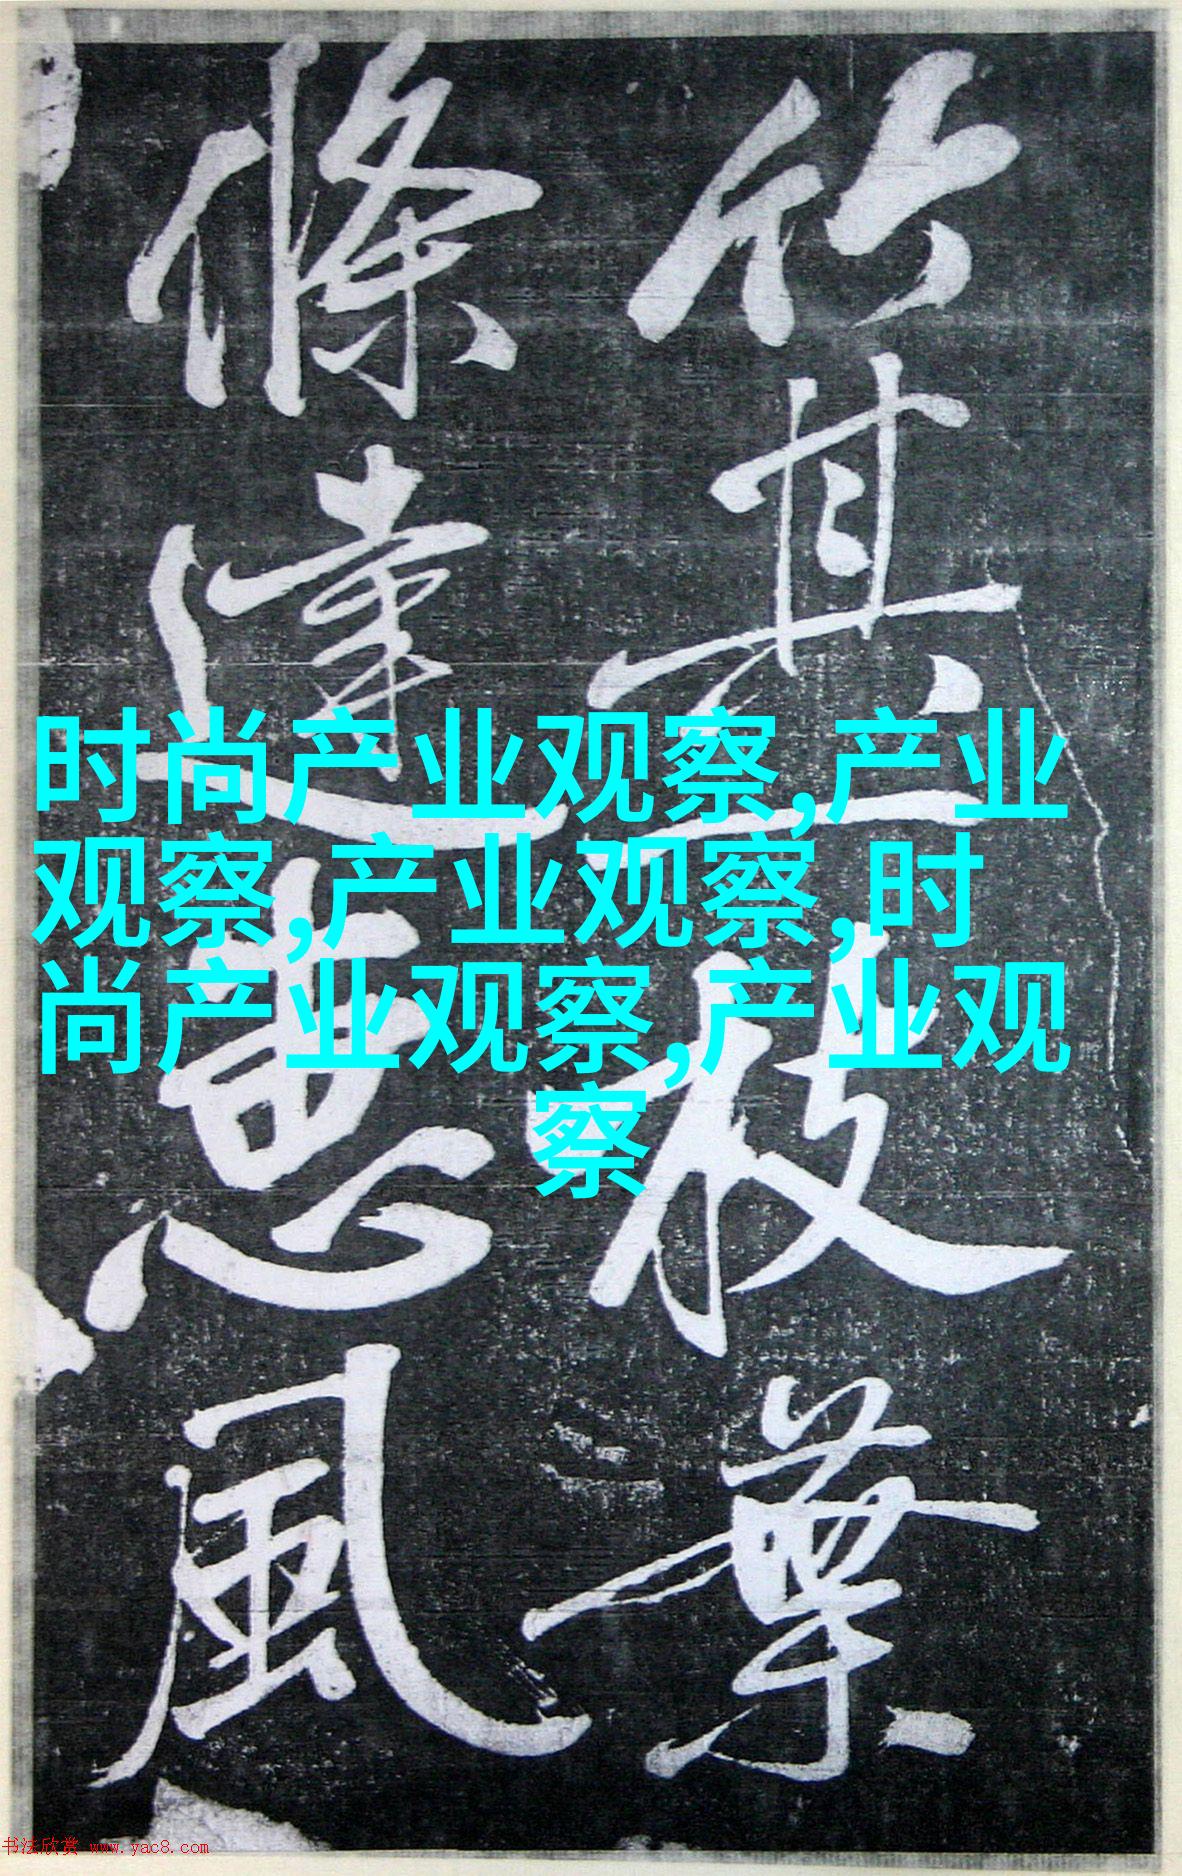 竹其枝葉
條達惠風
时尚产业观察,产业
观察,产业观察,时
尚产业观察,产业观
察
书法欣赏 www.yac8.com